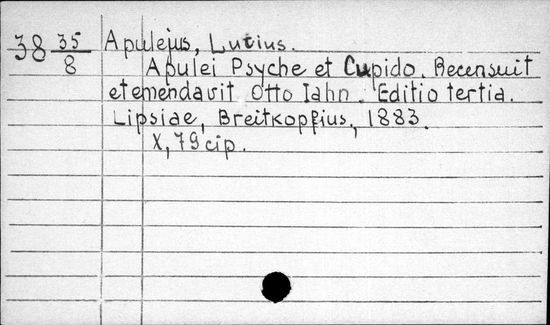 38 35/8 Apulejus, Lucius.
Apulei Psyche et Cupido. Recensuit
et emendavit Otto Iahn. Editio tertia.
Lipsiae, Breitkopfius, 1883.
X, 79 cip.